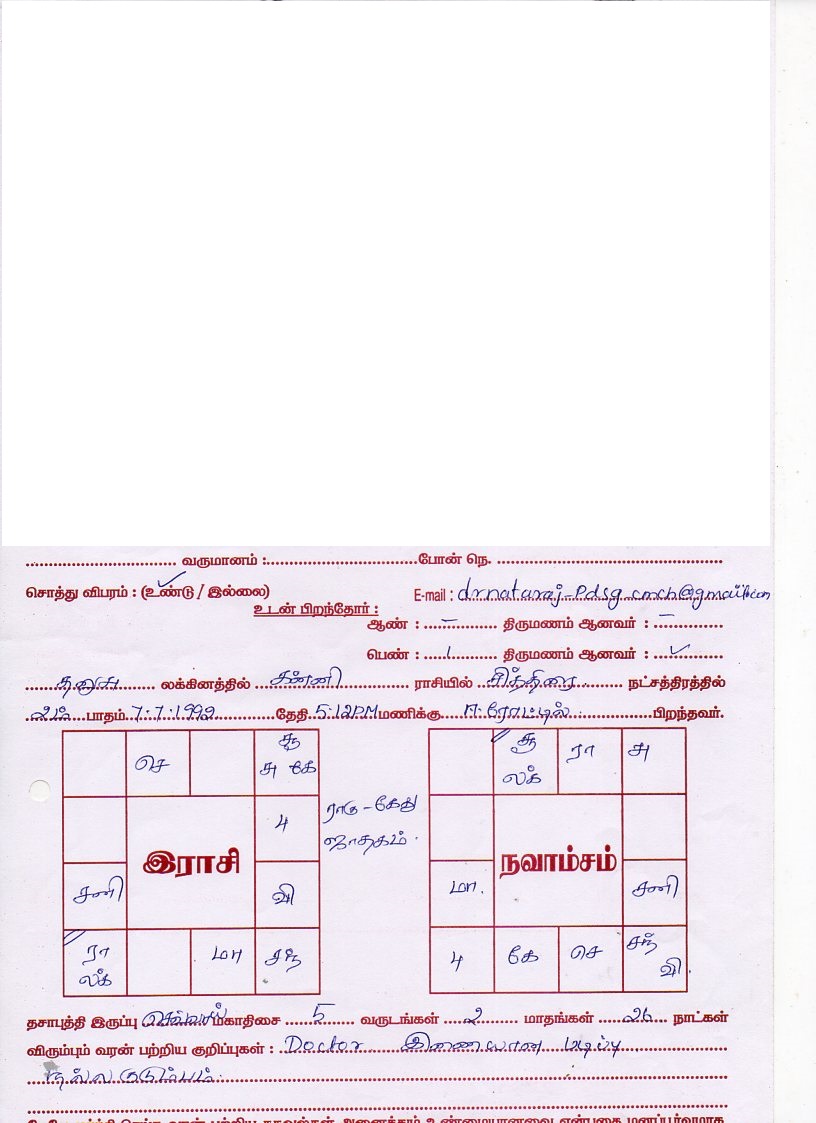 வருமானம் : போன் நெ.
சொத்து விபரம் : (உண்டு / இல்லை) E-mail : drnataraj-Pdsg.cmch@gmail.com
உடன் பிறந்தோர் :
ஆண் : – திருமணம் ஆனவர் : –
பெண் : 1 திருமணம் ஆனவர் : ✓
தனுசு லக்கினத்தில் கன்னி ராசியில் சித்திரை நட்சத்திரத்தில்
2ம் பாதம் 7.7.1992 தேதி 5.12PM மணிக்கு ஈரோட்டில் பிறந்தவர்.
செ
சூ
சு கே
சூ
லக்
ரா
சு
4
ராகு - கேது
ஜாதகம்.
இராசி
நவாம்சம்
சனி
வி
மா.
சனி
ரா
லக்
மா
சந்
4
கே
செ
சந்
வி
தசாபுத்தி இருப்பு செவ்வாய் மகாதிசை 5 வருடங்கள் 2 மாதங்கள் 26 நாட்கள்
விரும்பும் வரன் பற்றிய குறிப்புகள் : Doctor இணையான படிப்பு
நல்ல குடும்பம்.